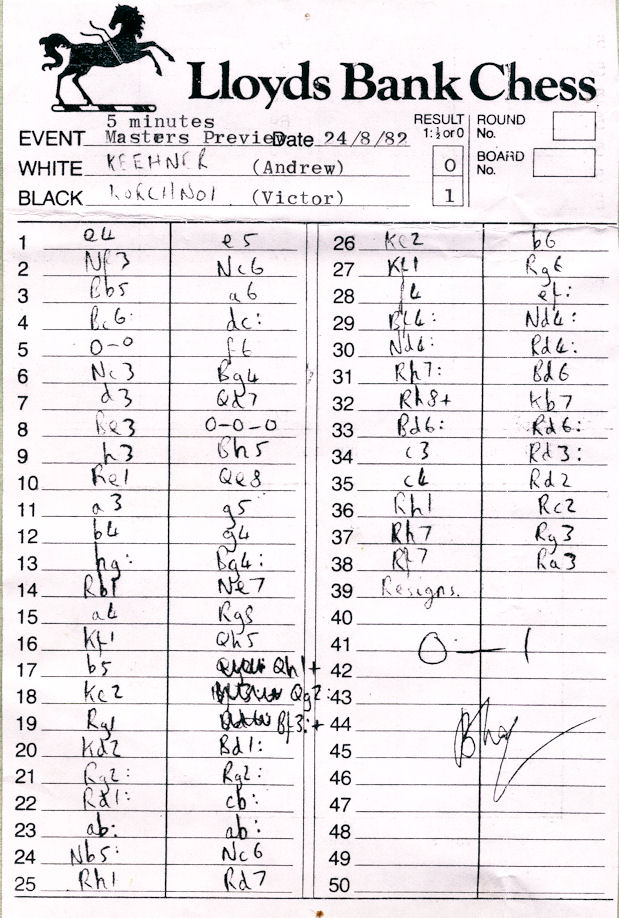 Lloyds Bank Chess
5 minutes
EVENT Masters Preview Date 24/8/82
RESULT
1:½or0
ROUND
No.
WHITE KEEHNER (Andrew) 0
BOARD
No.
BLACK KORCHNOI (Victor) 1
1 e4 e5
2 Nf3 Nc6
3 Bb5 a6
4 Bc6: dc:
5 0-0 f6
6 Nc3 Bg4
7 d3 Qd7
8 Be3 0-0-0
9 h3 Bh5
10 Re1 Qe8
11 a3 g5
12 b4 g4
13 hg: Bg4:
14 Rb1 Ne7
15 a4 Rg8
16 Kf1 Qh5
17 b5 Qh1+
18 Ke2 Qg2:
19 Rg1 Bf3:+
20 Kd2 Bd1:
21 Rg2: Rg2:
22 Rd1: cb:
23 ab: ab:
24 Nb5: Nc6
25 Rh1 Rd7
26 Ke2 b6
27 Kf1 Rg6
28 f4 ef:
29 Bf4: Nd4:
30 Nd4: Rd4:
31 Rh7: Bd6
32 Rh8+ Kb7
33 Bd6: Rd6:
34 c3 Rd3:
35 c4 Rd2
36 Rh1 Rc2
37 Rh7 Rg3
38 Rf7 Ra3
39 Resigns.
40
41 0-1
42
43
44
45
46
47
48
49
50